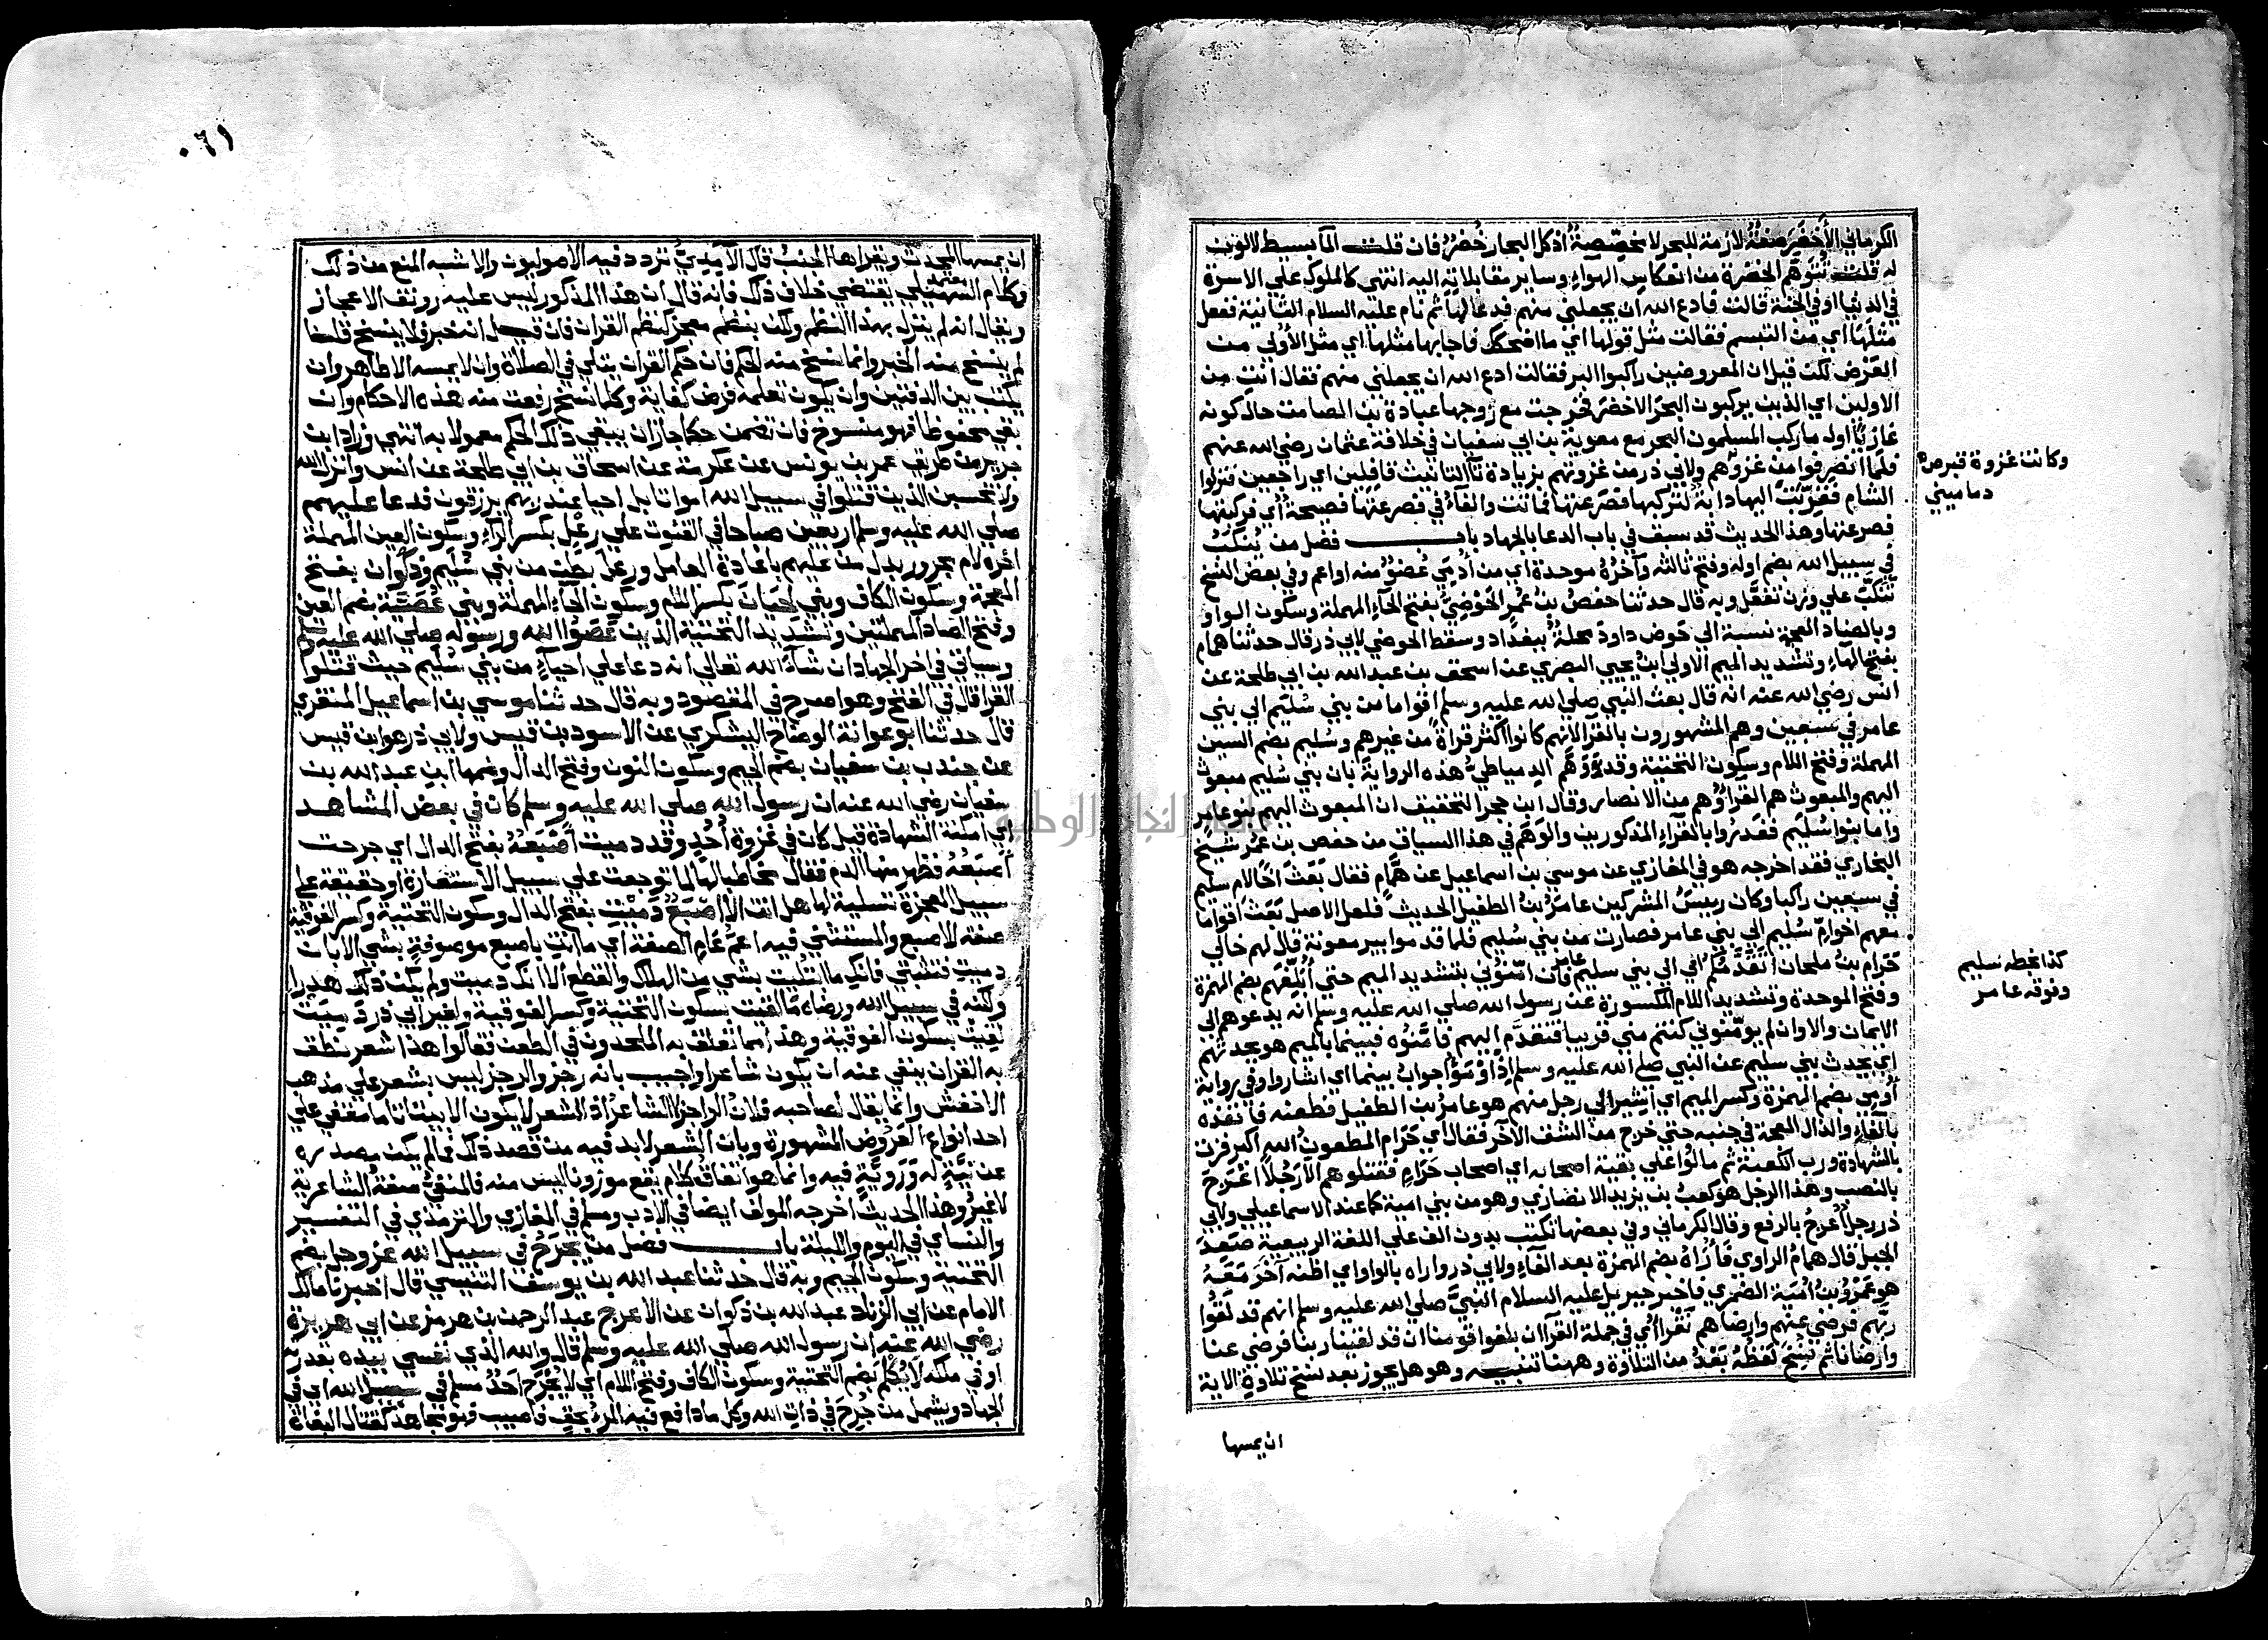 الكرماني الأخضر صفة لازمة للبحر لا مخصِّصة اذ كل البحار خُضْرٌ فان قلت الما بسيط لا لون
له قلت تُتَوهَّم الخضرة من انعكاس الهواء وساير مقابلاته اليه انتهي كالملوك علي الاسرة
في الدنيا او في الجنة قالت فادع الله ان يجعلني منهم فدعا لها ثم نام عليه السلام الثانية ففعل
مثلها اي من التبسم فقالت مثل قولها اي ما اضحكك فاجابها مثلها اي مثل الأولي من
العَرْض لكن قيل ان المعروضين راكبوا البر فقالت ادع الله ان يجعلني منهم فقال انتِ من
الاولين اي الذين يركبون البحر الاخضر فخرجت مع زوجها عبادة بن الصامت حال كونه
غازيًا اول ما ركب المسلمون البحر مع معوية بن ابي سفيان في خلافة عثمان رضي الله عنهم
فلما انصرفوا من غزوهم ولابي ذر من غزوتهم بزيادة تاء التانيث قافلين اي راجعين فنزلوا
الشام فقرّبت اليها دابة لتركبها فصرعتها فماتت والفاء في فصرعتها فصيحة اي فركبتها
فصرعتها وهذا الحديث قد سبق في باب الدعا بالجهاد باب فضل من يُنكَبُ
في سبيل الله بضم اوله وفتح ثالثه وآخره موحدة اي من أُدمي عُضوٌ منه او اعم وفي بعض النسخ
تنكَّبَ علي وزن تفعَّل وبه قال حدثنا حفص بن عُمر الحَوْضِيُّ بفتح الحاء المهملة وسكون الواو
وبالضاد المعجمة نسبة الي حَوض داودَ محلة ببغداد وسقط الحوضي لابي ذر قال حدثنا همام
بفتح الهاء وتشديد الميم الاولي ابن يحيي البصري عن اسحق بن عبد الله بن ابي طلحة عن
انس رضي الله عنه انه قال بعث النبي صلي الله عليه وسلم اقواما من بني سُليم الي بني
عامر في سبعين وهم المشهورون بالقرَّا لانهم كانوا اكثر قراة من غيرهم وسُليم بضم السين
المهملة وفتح اللام وسكون التحتية وقد وَهَّم الدمياطيُّ هذه الرواية بان بني سُليم مبعوث
اليهم والمبعوث هم القراءُ وهم من الانصار وقال ابن حجر التحقيق ان المبعوث اليهم بنو عامر
واما بنوا سُليم فغدروا بالقراء المذكورين والوَهَم في هذا السياق من حفص بن عُمَر شيخ
البخاري فقد اخرجه هو في المغازي عن موسي بن اسماعيل عن همَّام فقال بَعَثَ اخًا لام سليم
في سبعين راكبا وكان رييسُ المشركين عامرُ بنُ الطفيل الحديث فلعل الاصل بَعَثَ اقواما
معهم اخو امِّ سُليم الي بني عامر فصارت من بني سُليم فلما قدموا بير معونة قال لهم خالي
حَرام بنُ ملحان اتقدَّمُكُم اي الي بني سليم فان امَّنُوني بتشديد الميم حتي أُبلِّغَهم بضم الهمزة
عامر
وفتح الموحدة وتشديد اللام المكسورة عن رسول الله صلي الله عليه وسلم انه يدعوهم الي
الايمان والا وان لم يؤمّنوني كنتم مني قريبا فتقدَّم اليهم فامَّنُوه فبينما بالميم هو يحدثهم
اي يحدث بني سليم عن النبي صلي الله عليه وسلم اذ أوْمَؤُا جواب بينما اي اشاروا وفي رواية
أُومِيَ بضم الهمزة وكسر الميم اي اشير الي رجل منهم هو عامر بن الطفيل فطعنه فانفذه
بالفاء والذال المعجمة في جنبه حتي خرج من الشق الآخر فقال اي حَرَام المطعونُ الله اكبر فزت
بالشهادة ورب الكعبة ثم مالوا علي بقية اصحابه اي اصحاب حَرَام فقتلوهم الا رَجُلًا اعْرَجَ
بالنصب وهذا الرجل هو كعبُ بن يزيد الانصاري وهو من بني امية كما عند الاسماعيلي ولابي
ذر رجلٌ اعرجُ بالرفع وقال الكرماني وفي بعضها تكتب بدون الف علي اللغة الربيعية صَعِدَ
الجبل قال همام الراوي فأُرَاهُ بضم الهمزة بعد الفاء ولابي ذر واراه بالواو اي اظنه آخَرَ مَعَهُ
هو عَمْرُو بن امية الضمري فاخبر جبريل عليه السلام النبيَّ صلي الله عليه وسلم انهم قد لَقُوا
ربَّهم فرضي عنهم وارضاهم نَقْرَا اي في جملة القرآن ان بلغوا قومنا ان قد لقينا ربنا فرضي عنا
وارضانا ثم نُسِخَ لَفْظُهُ بَعْدُ من التلاوة وههنا تنبيه وهو هل يجوز بعد نسخ تلاوة الاية
ان يمسها
وكانت غزوة قبرص
دماميني
كذا بخطه سليم
وفوقه عامر
٠٦١
ان يمسها المحدث ويقراها الجنب قال الآمِدِيُّ تردد فيه الاصوليون والاشبه المنع من ذلك
وكلام السهيلي يقتضي خلاف ذلك فانه قال ان هذا المذكور ليس عليه رونق الاعجاز
ويقال انه لم ينزل بهذا النظم ولكن بنظم معجز كنظم القران فان قيل انه خبر فلا ينسخ قلنا
لم ينسخ منه الخبر وانما نسخ منه الحكم فان حكم القران يتلي في الصلاة وان لا يمسه الا طاهر وان
يكتب بين الدفتين وان يكون تعلمه فرض كفاية وكلما نسخ رفعت منه هذه الاحكام وان
بقي محفوظا فهو منسوخ فان تضمن حكما جاز ان يبقي ذلك الحكم معمولا به انتهي وزاد ابن
جرير من طريق عمر بن يونس عن عكرمة عن اسحاق بن ابي طلحة عن انس وانزل الله
ولا تحسبن الذين قتلوا في سبيل الله امواتا بل احيا عند ربهم يرزقون فدعا عليهم
صلي الله عليه وسلم اربعين صباحا في القنوت علي رِعْلٍ بكسر الراء وسكون العين المهملة
اخره لام مجرور بدل من عليهم باعادة العامل ورعل بَطن من بني سُليم وذَكْوان بفتح
المعجمة وسكون الكاف وبني لِحْيَان بكسر اللام وسكون الحاء المهملة وبني عُصَيَّة بضم العين
وفتح الصاد المهملتين وتشديد التحتية الذين عَصَوُا الله ورسوله صلي الله عليه وسلم
وسياتي في اخر الجهاد ان شاء الله تعالي انه دعا علي احياءٍ من بني سُليم حيث قتلوا
القرا قال في الفتح وهو اصرح في المقصود وبه قال حدثنا موسي بن اسماعيل المنقري
قال حدثنا ابو عوانة الوضاح اليشكري عن الاسود بن قيس ولابي ذر هو ابن قيس
عن جندب بن سفيان بضم الجيم وسكون النون وفتح الدال وضمها ابن عبد الله بن
سفيان رضي الله عنه ان رسول الله صلي الله عليه وسلم كان في بعض المشاهد
اي امكنة الشهادة قيل كان في غزوة أُحُدٍ وقد دميت اصبَعُه بفتح الدال اي جرحت
اصبَعُهُ فظهر منها الدم فقال مخاطبا لها لما توجعت علي سبيل الاستعارة او حقيقة علي
سبيل المعجزة تسلية لها هل انت الا اصْبَعٌ دَمِيْتِ بفتح الدال وسكون التحتية وكسر الفوقية
صفة لاصبع والمستثني فيه اعَمُّ عَامِ الصفة اي ما انتِ باصبع موصوفةٍ بشي الا بان
دميتِ فتثبتي فانكِ ما ابتُليت بشي من الهلاك والقطع الا انك دميت ولم يكن ذلك هدرا
ولكنه في سبيل الله ورضاه ما لقيت بسكون التحتية وكسر الفوقية ولغير ابي ذر دَمِيَتْ
لَقِيَتْ بسكون الفوقية وهذا مما تعلق به الملحدون في الطعن فقالوا هذا شعر نطق
به القران ينفي عنه ان يكون شاعرا واجيب بانه رجز والرجز ليس بشعر علي مذهب
الاخفش وانما يقال لصاحبه فلان الراجز لا الشاعر اذ الشعر لا يكون الا بيتا تاما مقفي علي
احد انواع العَرُوض المشهورة وبان الشعر لابد فيه من قصد ذلك فما لم يكن مصدره
عن نِيَّةٍ له وَرَوِيَّةٍ فيه وانما هو اتفاق كلام يقع موزونا ليس منه فالمنفي صفةُ الشاعرية
لا غيرُ وهذا الحديث اخرجه المولف ايضا في الادب ومسلم في المغازي والترمذي في التفسير
والنساي في اليوم والليلة باب فضل من يُجْرَحُ في سبيل الله عز وجل بضم
التحتية وسكون الجيم وبه قال حدثنا عبد الله بن يوسف التنيسي قال اخبرنا مالك
الامام عن ابي الزناد عبد الله بن ذكوان عن الاعرج عبد الرحمن بن هرمز عن ابي هريرة
رضي الله عنه ان رسول الله صلي الله عليه وسلم قال والله الذي نفسي بيده بقدرته
او في ملكه لا يُكْلَم بضم التحتية وسكون الكاف وفتح اللام اي لا يُجْرَح احدٌ مسلم في سبيل الله اي في
الجهاد ويشمل من جُرِحَ في ذات الله وكل ما دافع فيه المرءُ بحقٍ فاصيب فهو مجاهدٌ كقتال البغاة